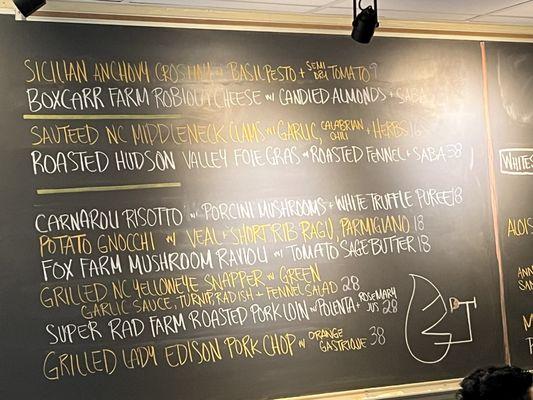 SICILIAN ANCHOVY CROSTINI w BASIL PESTO + SEMI DRY TOMATO 9
BOXCARR FARM ROBIOLA CHEESE w/ CANDIED ALMONDS + SABA
SAUTEED NC MIDDLENECK CLAMS w GARLIC, CALABRIAN CHILI + HERBS 16
ROASTED HUDSON VALLEY FOIE GRAS w ROASTED FENNEL + SABA 38
CARNAROLI RISOTTO w PORCINI MUSHROOMS + WHITE TRUFFLE PUREE 18
POTATO GNOCCHI w/ VEAL + SHORT RIB RAGU, PARMIGIANO 18
FOX FARM MUSHROOM RAVIOLI w TOMATO SAGE BUTTER 18
GRILLED NC YELLOWEYE SNAPPER w GREEN
GARLIC SAUCE, TURNIP, RADISH + FENNEL SALAD 28
SUPER RAD FARM ROASTED PORK LOIN w POLENTA + ROSEMARY JUS 28
GRILLED LADY EDISON PORK CHOP w ORANGE GASTRIQUE 38
WHITES
ALOIS